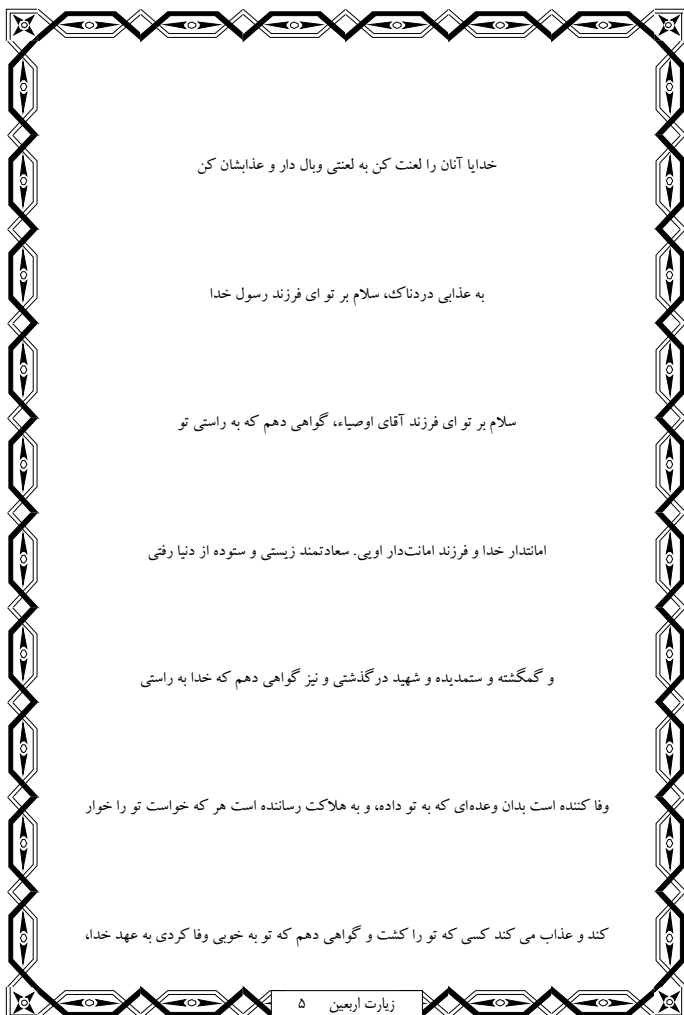 خدایا آنان را لعنت کن به لعنتی وبال دار و عذابشان کن
به عذابی دردناک، سلام بر تو ای فرزند رسول خدا
سلام بر تو ای فرزند آقای اوصیاء، گواهی دهم که به راستی تو
امانتدار خدا و فرزند امانت‌دار اویی. سعادتمند زیستی و ستوده از دنیا رفتی
و گمگشته و ستمدیده و شهید درگذشتی و نیز گواهی دهم که خدا به راستی
وفا کننده است بدان وعده‌ای که به تو داده، و به هلاکت رساننده است هر که خواست تو را خوار
کند و عذاب می کند کسی که تو را کشت و گواهی دهم که تو به خوبی وفا کردی به عهد خدا،
زیارت اربعین ۵